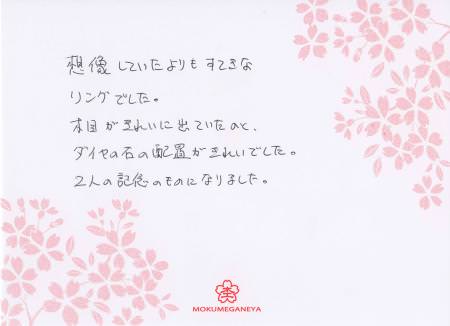 想像していたよりもすてきな
リングでした。
木目がきれいに出ていたのと、
ダイヤの石の配置がきれいでした。
2人の記念のものになりました。
MOKUMEGANEYA